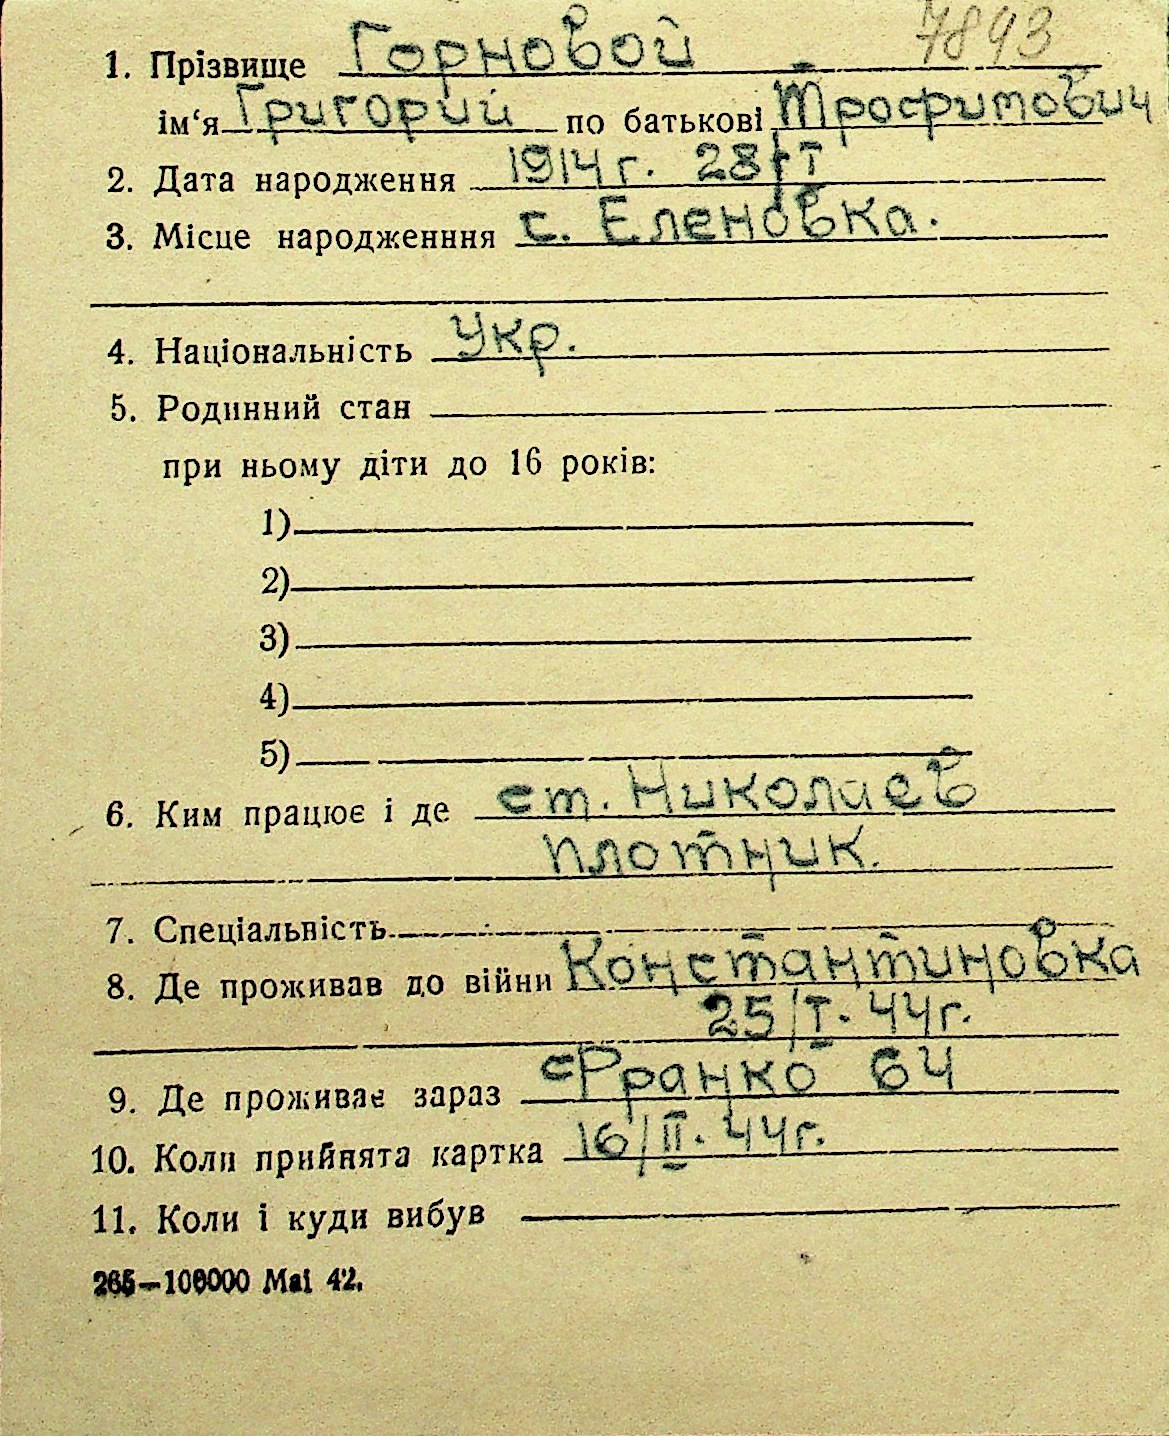 7893
1. Прізвище Горновой
ім‘я Григорий по батькові Трофимович
2. Дата народження 1914 г. 28/I
3. Місце народженння с. Еленовка.
4. Національність Укр.
5. Родинний стан
при ньому діти до 16 років:
1)
2)
3)
4)
5)
6. Ким працює і де ст. Николаев
плотник.
7. Спеціальність
8. Де проживав до війни Константиновка
25/I. 44г.
9. Де проживає зараз Франко 64
10. Коли прийнята картка 16/II. 44г.
11. Коли і куди вибув
265—100000 Mai 42.